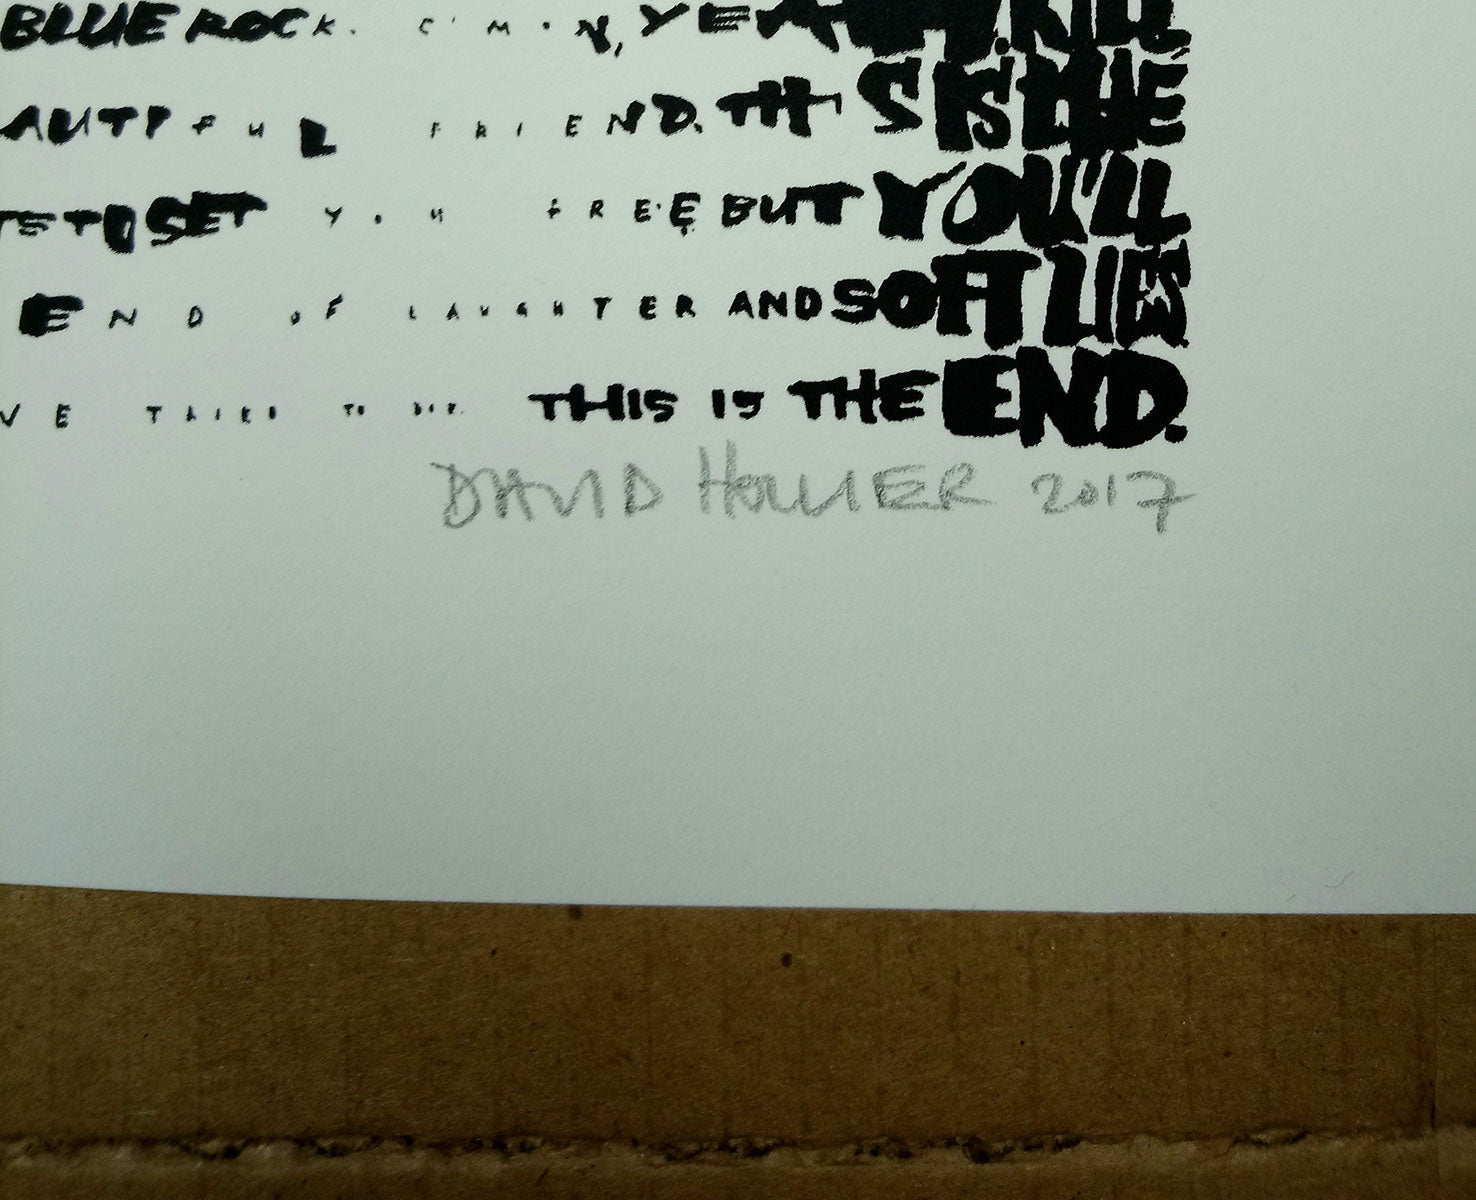 BLUE ROCK. C'MON, YEAH. KILL
AUTIFUL FRIEND. THIS IS THE
TS TO SET YOU FREE BUT YOU'LL
END OF LAUGHTER AND SOFT LIES.
VE TRIED TO DIE. THIS IS THE END.
DAVID HOLLIER 2017